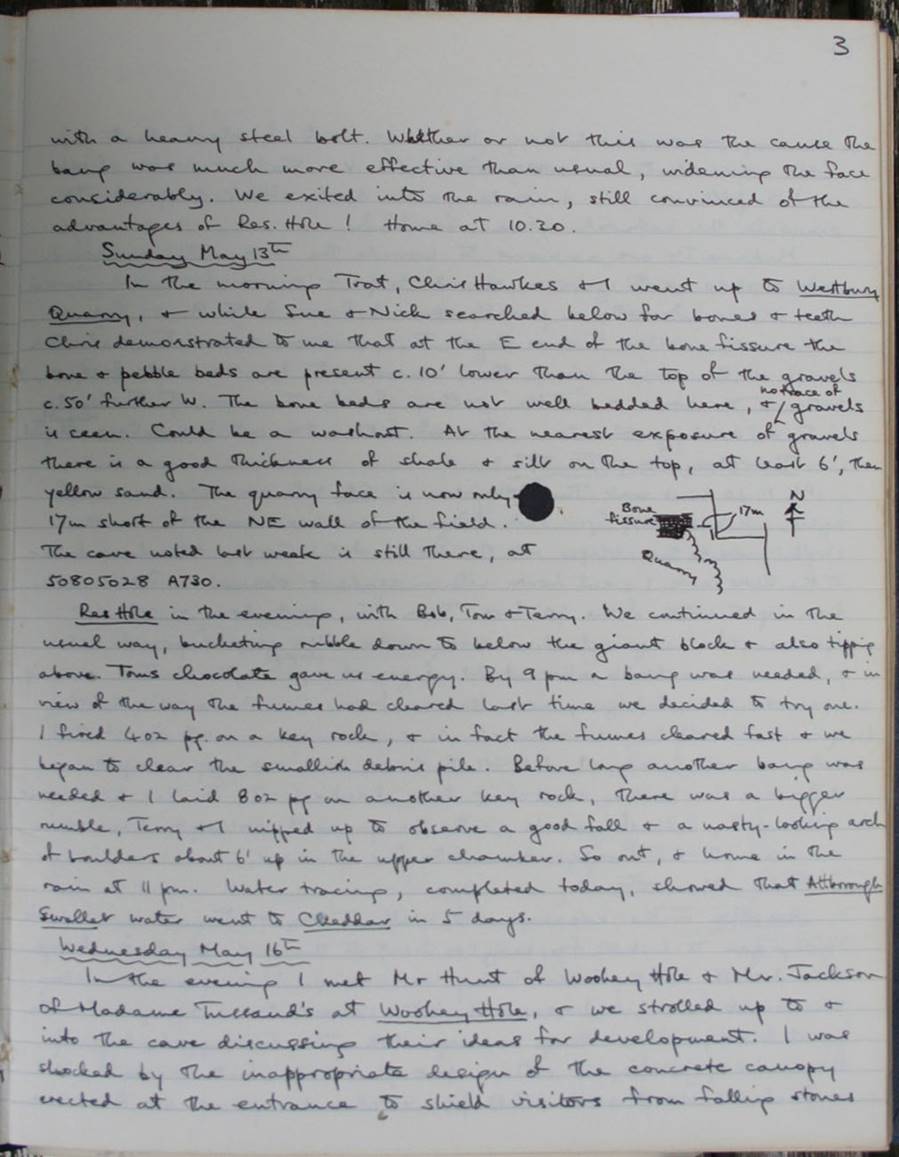 3
with a heavy steel bolt. Whether or not this was the cause the
bang was much more effective than usual, widening the face
considerably. We exited into the rain, still convinced of the
advantages of Res. Hole! Home at 10.30.
Sunday May 13th
In the morning Trat, Chris Hawkes & I went up to Westbury
Quarry, & while Sue & Nick searched below for bones & teeth
Chris demonstrated to me that at the E end of the bone fissure the
bone & pebble beds are present c. 10' lower than the top of the gravels
c. 50' further W. The bone beds are not well bedded here, & no trace of gravels
is seen. Could be a washout. At the nearest exposure of gravels
there is a good thickness of shale & silt on the top, at least 6', then
yellow sand. The quarry face is now only
17m short of the NE wall of the field.
The cave noted last week is still there, at
50805028 A730.
Bone
fissure
17m
N
Quarry
Res Hole in the evening, with Bob, Tom & Terry. We continued in the
usual way, bucketing rubble down to below the giant block & also tipping
above. Tom's chocolate gave us energy. By 9 pm a bang was needed, & in
view of the way the fumes had cleared last time we decided to try one.
I fired 4oz pg. on a key rock, & in fact the fumes cleared fast & we
began to clear the smallish debris pile. Before long another bang was
needed & I laid 8oz pg on another key rock, There was a bigger
rumble, Terry & I nipped up to observe a good fall & a nasty-looking arch
of boulders about 6' up in the upper chamber. So out, & home in the
rain at 11 pm. Water tracing, completed today, showed that Attborough
Swallet water went to Cheddar in 5 days.
Wednesday May 16th
In the evening I met Mr Hunt of Wookey Hole & Mr. Jackson
of Madame Tussaud's at Wookey Hole, & we strolled up to &
into the cave discussing their ideas for development. I was
shocked by the inappropriate design of the concrete canopy
erected at the entrance to shield visitors from falling stones